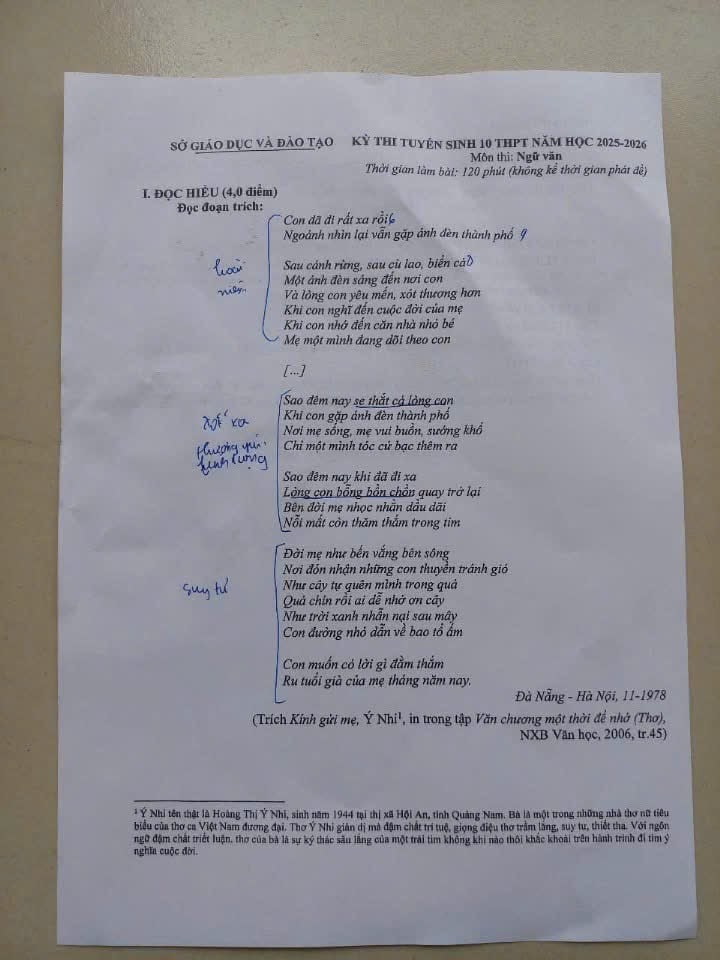 SỞ GIÁO DỤC VÀ ĐÀO TẠO KỲ THI TUYỂN SINH 10 THPT NĂM HỌC 2025-2026
Môn thi: Ngữ văn
Thời gian làm bài: 120 phút (không kể thời gian phát đề)
I. ĐỌC HIỂU (4,0 điểm)
Đọc đoạn trích:
Con đã đi rất xa rồi
Ngoảnh nhìn lại vẫn gặp ánh đèn thành phố
Sau cánh rừng, sau cù lao, biển cả
Một ánh đèn sáng đến nơi con
Và lòng con yêu mến, xót thương hơn
Khi con nghĩ đến cuộc đời của mẹ
Khi con nhớ đến căn nhà nhỏ bé
Mẹ một mình đang dõi theo con
hoài
niệm
[...]
Sao đêm nay se thắt cả lòng con
Khi con gặp ánh đèn thành phố
Nơi mẹ sống, mẹ vui buồn, sướng khổ
Chỉ một mình tóc cứ bạc thêm ra
Sao đêm nay khi đã đi xa
Lòng con bỗng bồn chồn quay trở lại
Bên đời mẹ nhọc nhằn dầu dãi
Nỗi mất còn thăm thẳm trong tim
xót xa
Đời mẹ như bến vắng bên sông
Nơi đón nhận những con thuyền tránh gió
Như cây tự quên mình trong quả
Quả chín rồi ai dễ nhớ ơn cây
Như trời xanh nhẫn nại sau mây
Con đường nhỏ dẫn về bao tổ ấm
Con muốn có lời gì đằm thắm
Ru tuổi già của mẹ tháng năm nay.
suy tư
Đà Nẵng - Hà Nội, 11-1978
(Trích Kính gửi mẹ, Ý Nhi1, in trong tập Văn chương một thời để nhớ (Thơ),
NXB Văn học, 2006, tr.45)
1 Ý Nhi tên thật là Hoàng Thị Ý Nhi, sinh năm 1944 tại thị xã Hội An, tỉnh Quảng Nam. Bà là một trong những nhà thơ nữ tiêu
biểu của thơ ca Việt Nam đương đại. Thơ Ý Nhi giản dị mà đậm chất trí tuệ, giọng điệu thơ trầm lắng, suy tư, thiết tha. Với ngôn
ngữ đậm chất triết luận, thơ của bà là sự ký thác sâu lắng của một trái tim không khi nào thôi khắc khoải trên hành trình đi tìm ý
nghĩa cuộc đời.